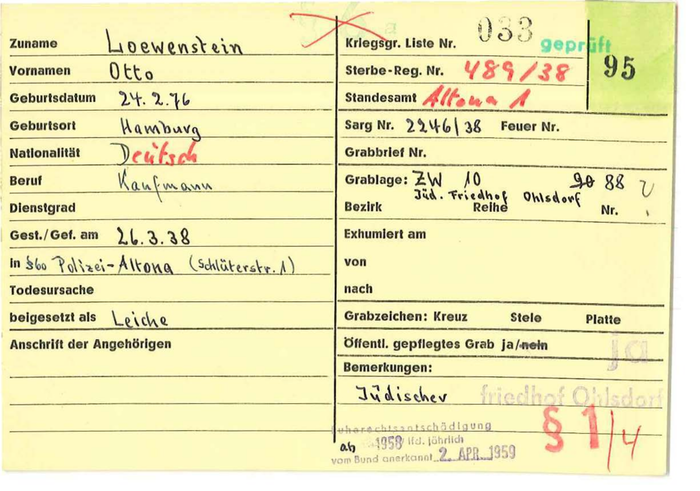 Zuname Loewenstein
Vornamen Otto
Geburtsdatum 24.2.76
Geburtsort Hamburg
Nationalität Deutsch
Beruf Kaufmann
Dienstgrad
Gest./Gef. am 26.3.38
in Polizei-Altona (Schlüterstr. 1)
Todesursache
beigesetzt als Leiche
Anschrift der Angehörigen
Kriegsgr. Liste Nr. 033 geprüft
95
Sterbe-Reg. Nr. 489/38
Standesamt Altona 1
Sarg Nr. 2246/38 Feuer Nr.
Grabbrief Nr.
Grablage: ZW 10 90 88
Jüd. Friedhof Ohlsdorf
Bezirk Reihe Nr.
Exhumiert am
von
nach
Grabzeichen: Kreuz Stele Platte
Öffentl. gepflegtes Grab ja/nein ja
Bemerkungen:
Jüdischer friedhof Ohlsdorf
§ 1/4
Ruherechtsentschädigung
ab 1958 lfd. jährlich
vom Bund anerkannt 2. APR. 1959